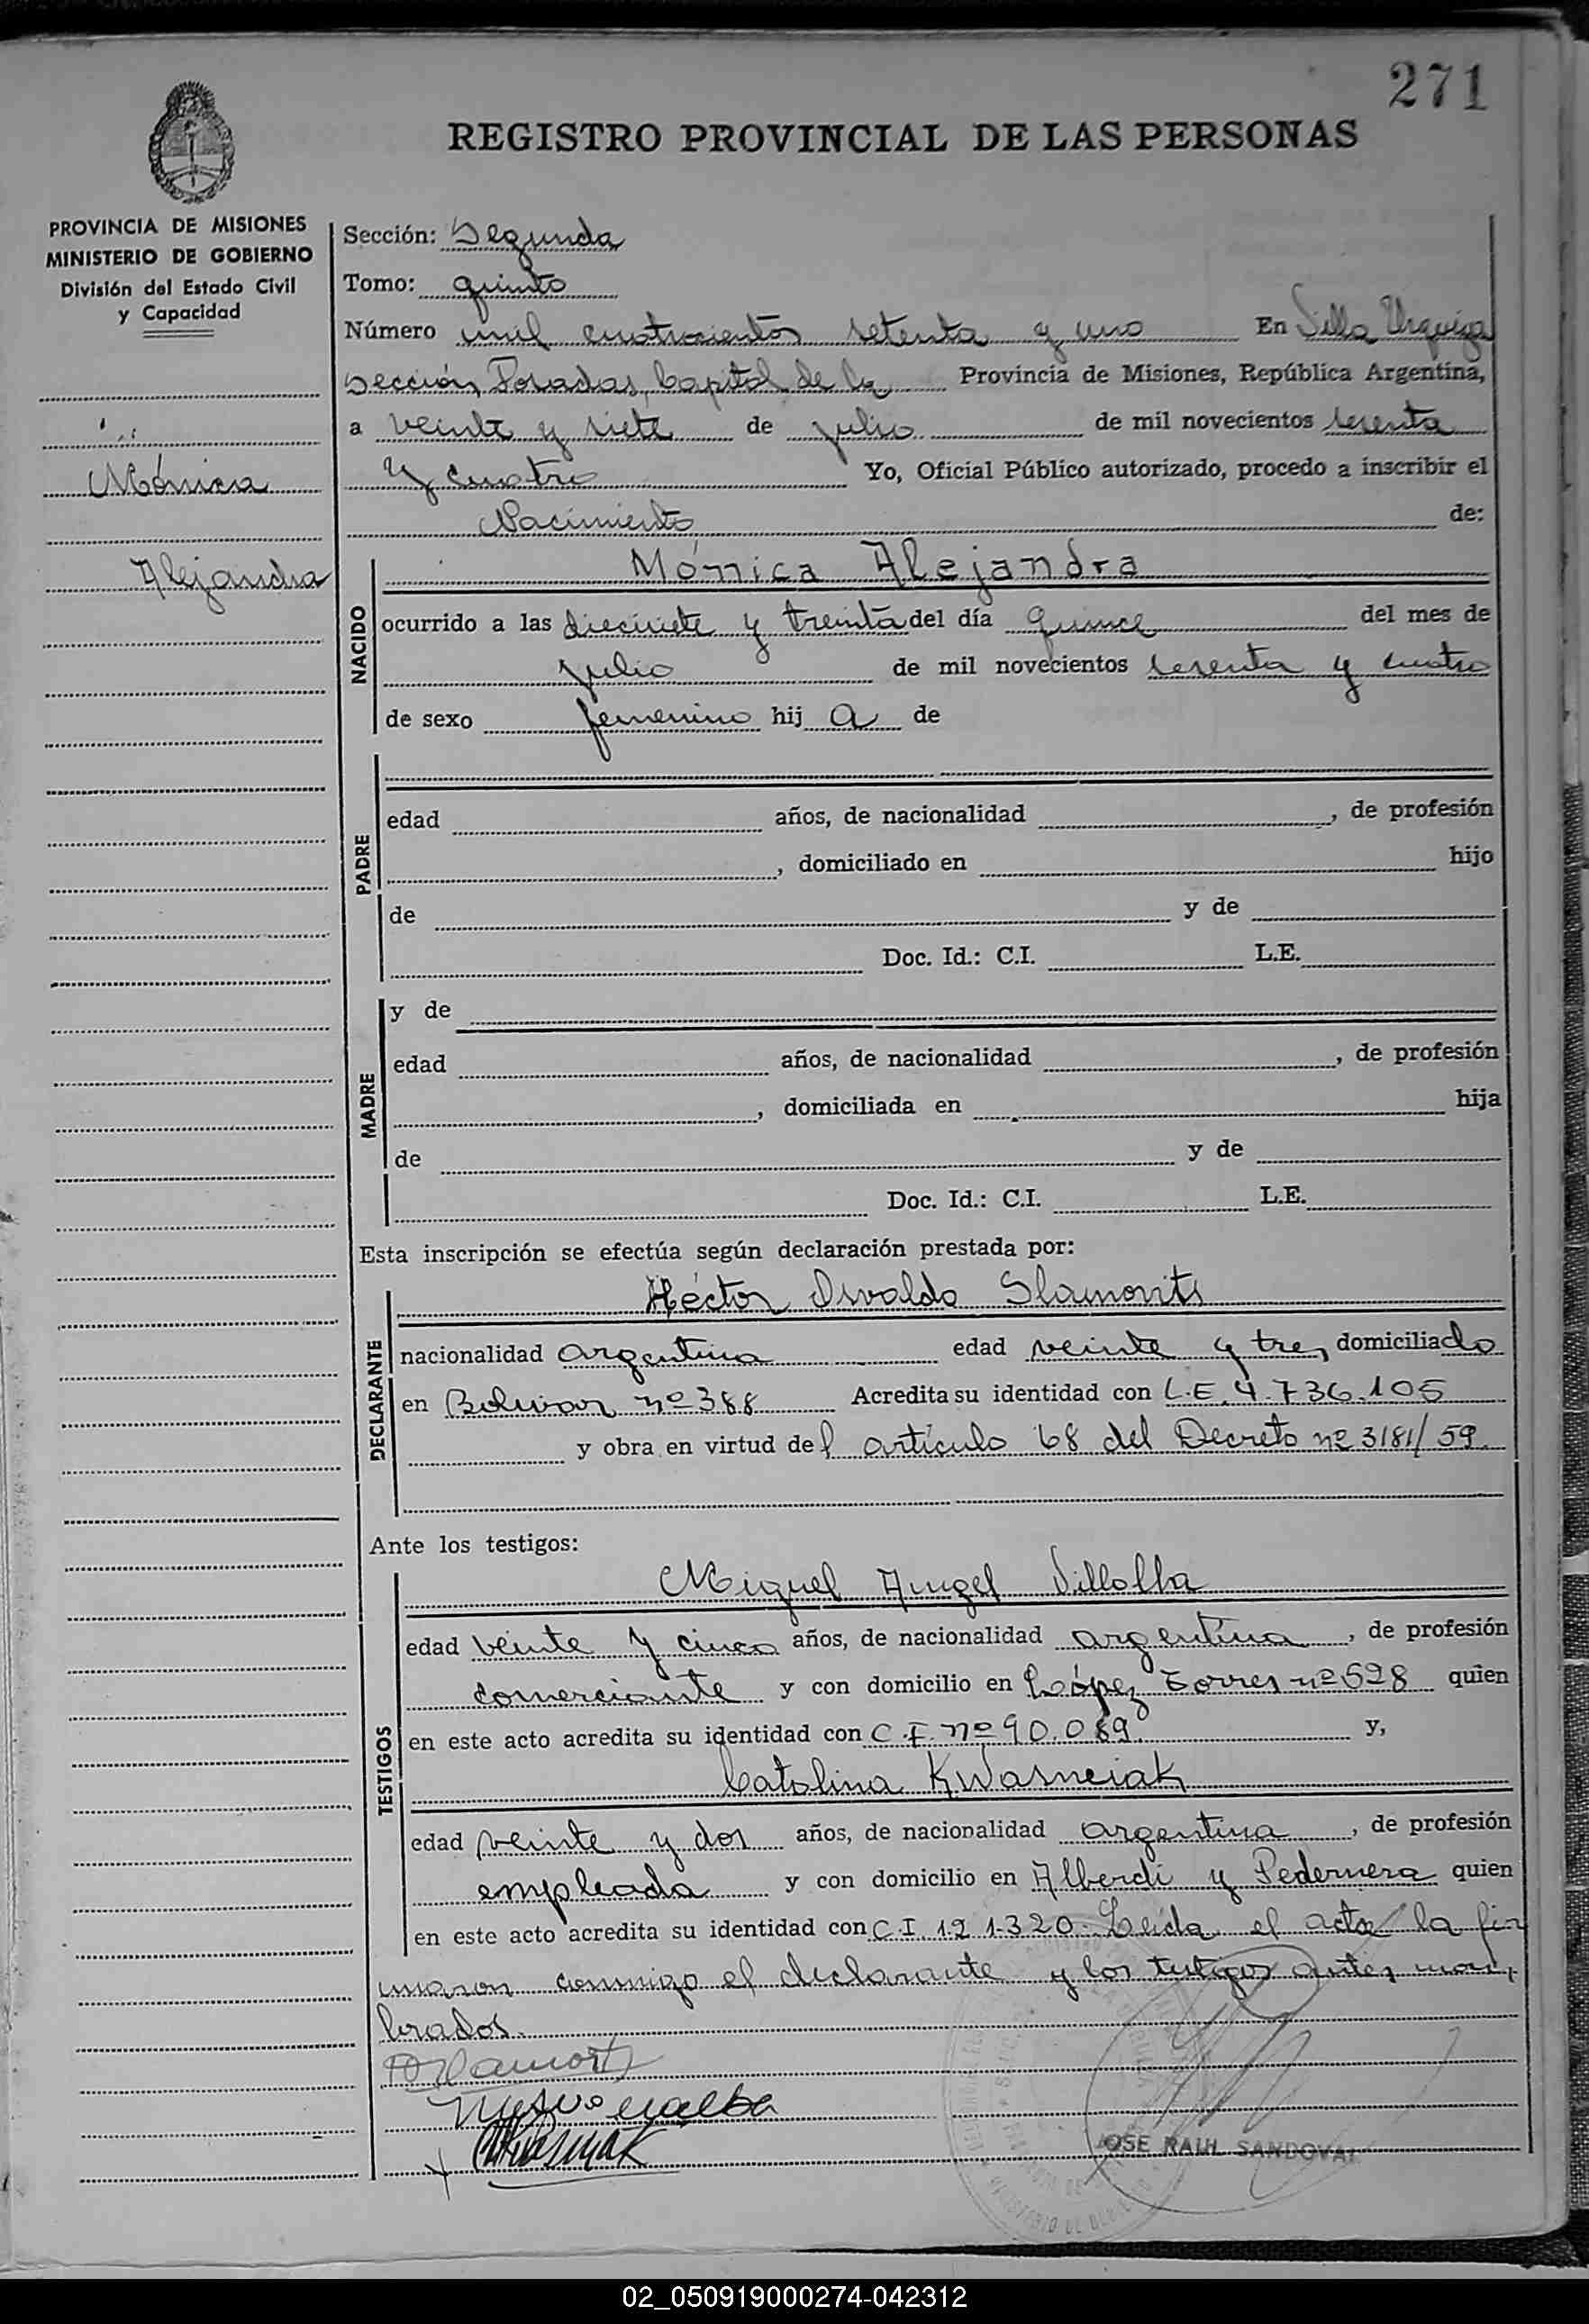 271
REGISTRO PROVINCIAL DE LAS PERSONAS
PROVINCIA DE MISIONES
MINISTERIO DE GOBIERNO
División del Estado Civil
y Capacidad
Mónica
Alejandra
Sección: Segunda
Tomo: quinto
Número mil cuatrocientos setenta y uno En Villa Urquiza
Sección, Posadas, Capital de la Provincia de Misiones, República Argentina,
a veinte y siete de julio de mil novecientos sesenta
y cuatro Yo, Oficial Público autorizado, procedo a inscribir el
Nacimiento de:
NACIDO
Mónica Alejandra
ocurrido a las diecisiete y treinta del día quince del mes de
julio de mil novecientos sesenta y cuatro
de sexo femenino hij a de
PADRE
edad años, de nacionalidad , de profesión
, domiciliado en hijo
de y de
Doc. Id.: C.I. L.E.
MADRE
y de
edad años, de nacionalidad , de profesión
, domiciliada en hija
de y de
Doc. Id.: C.I. L.E.
Esta inscripción se efectúa según declaración prestada por:
DECLARANTE
Héctor Osvaldo Slamovits
nacionalidad argentina edad veinte y tres domiciliado
en Bolivar nº 388 Acredita su identidad con L.E. 4.736.105
y obra en virtud del artículo 68 del Decreto nº 3181/59.
Ante los testigos:
TESTIGOS
Miguel Angel Villalba
edad veinte y cinco años, de nacionalidad argentina, de profesión
comerciante y con domicilio en López Torres nº 528 quien
en este acto acredita su identidad con C.I. nº 90.089. y,
Catalina Kwasneiak
edad veinte y dos años, de nacionalidad argentina, de profesión
empleada y con domicilio en Alberdi y Pedernera quien
en este acto acredita su identidad con C.I. 121.320. Leída el acta la fir
maron conmigo el declarante y los testigos antes nom,
brados.
JOSE RAUL SANDOVAL
02_050919000274-042312